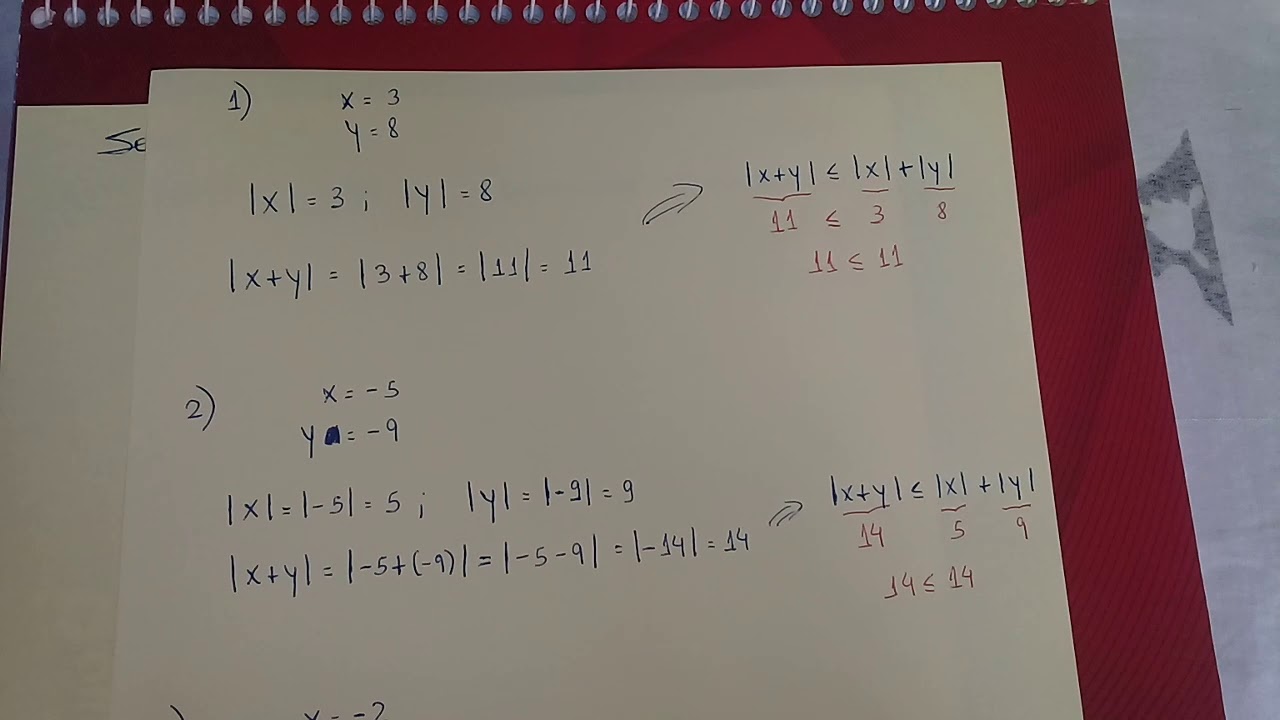 Se
1)
x = 3
y = 8
|x| = 3 ; |y| = 8
|x+y| = |3+8| = |11| = 11
|x+y| ≤ |x| + |y|
11 ≤ 3 8
11 ≤ 11
2)
x = -5
y = -9
|x| = |-5| = 5 ; |y| = |-9| = 9
|x+y| = |-5+(-9)| = |-5-9| = |-14| = 14
|x+y| ≤ |x| + |y|
14 5 9
14 ≤ 14
x = -2